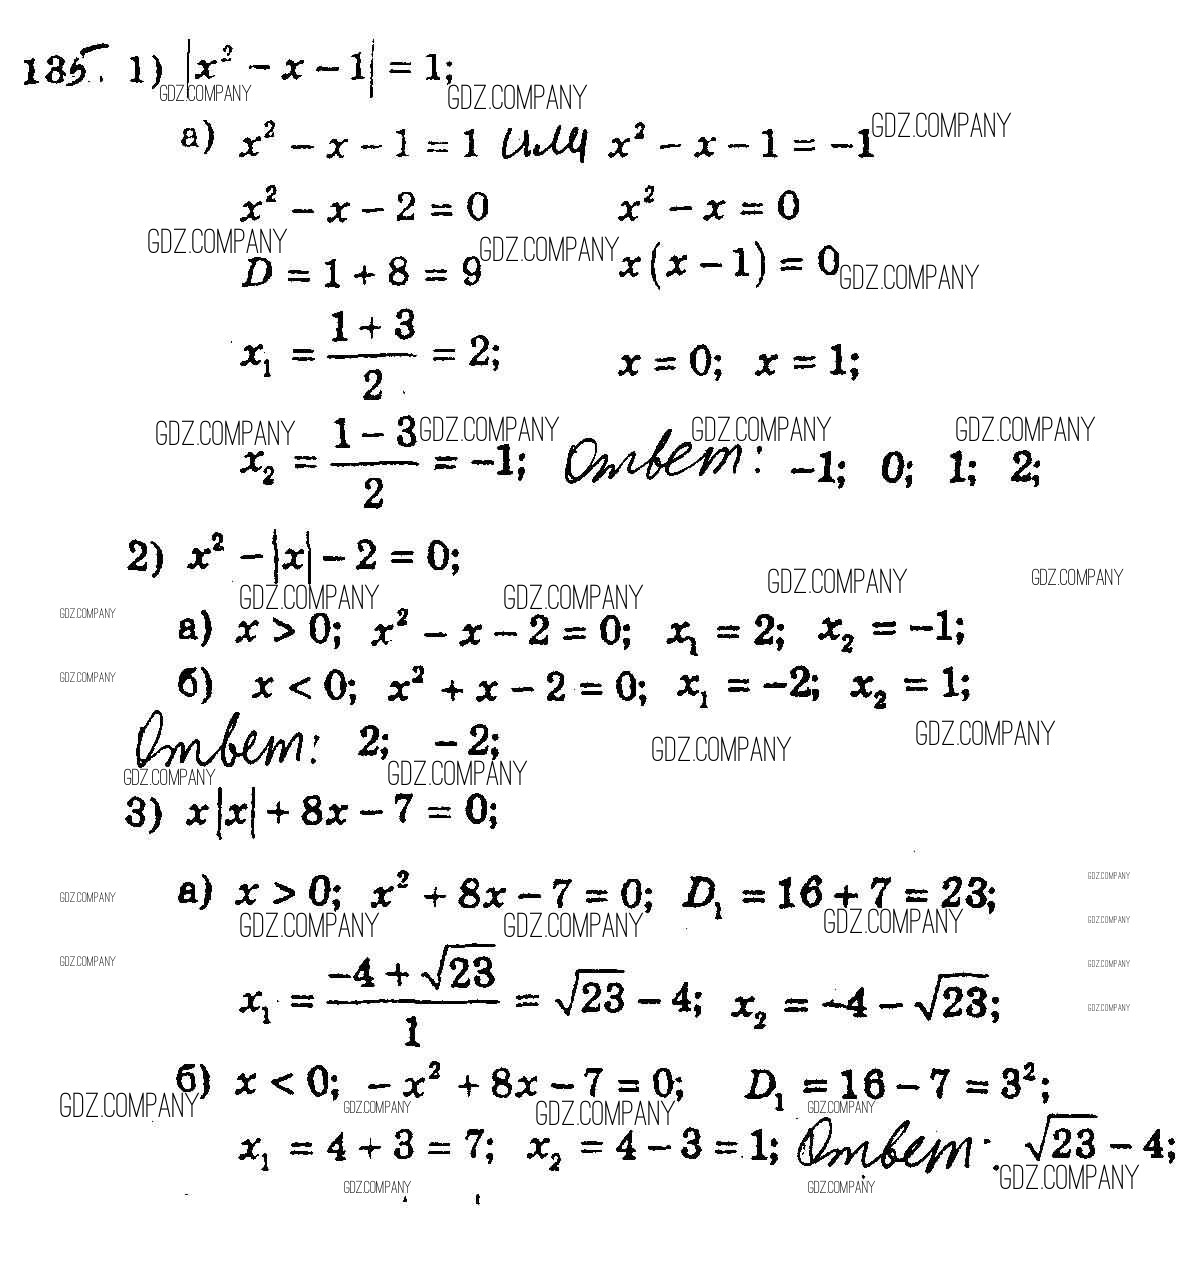 135. 1) |x² − x − 1| = 1;
GDZ.COMPANY GDZ.COMPANY GDZ.COMPANY
а) x² − x − 1 = 1 или x² − x − 1 = −1
x² − x − 2 = 0 x² − x = 0
GDZ.COMPANY GDZ.COMPANY GDZ.COMPANY
D = 1 + 8 = 9 x(x − 1) = 0
x₁ = (1 + 3)/2 = 2; x = 0; x = 1;
GDZ.COMPANY GDZ.COMPANY GDZ.COMPANY GDZ.COMPANY
x₂ = (1 − 3)/2 = −1; Ответ: −1; 0; 1; 2;
2) x² − |x| − 2 = 0;
GDZ.COMPANY GDZ.COMPANY GDZ.COMPANY GDZ.COMPANY
GDZ.COMPANY
а) x > 0; x² − x − 2 = 0; x₁ = 2; x₂ = −1;
GDZ.COMPANY
б) x < 0; x² + x − 2 = 0; x₁ = −2; x₂ = 1;
Ответ: 2; − 2;
GDZ.COMPANY GDZ.COMPANY
GDZ.COMPANY GDZ.COMPANY
3) x|x| + 8x − 7 = 0;
а) x > 0; x² + 8x − 7 = 0; D₁ = 16 + 7 = 23;
GDZ.COMPANY GDZ.COMPANY
GDZ.COMPANY GDZ.COMPANY GDZ.COMPANY GDZ.COMPANY
GDZ.COMPANY GDZ.COMPANY
x₁ = (−4 + √23)/1 = √23 − 4; x₂ = −4 − √23;
GDZ.COMPANY
б) x < 0; − x² + 8x − 7 = 0; D₁ = 16 − 7 = 3²;
GDZ.COMPANY GDZ.COMPANY GDZ.COMPANY GDZ.COMPANY
x₁ = 4 + 3 = 7; x₂ = 4 − 3 = 1; Ответ: √23 − 4;
GDZ.COMPANY GDZ.COMPANY GDZ.COMPANY